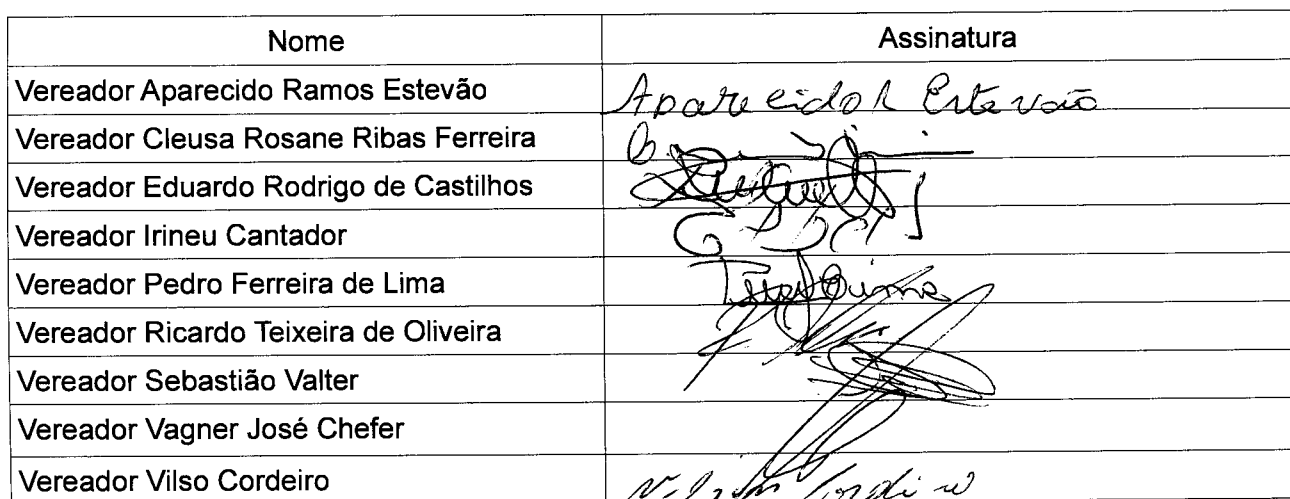 Nome Assinatura
Vereador Aparecido Ramos Estevão Aparecido R Estevão
Vereador Cleusa Rosane Ribas Ferreira
Vereador Eduardo Rodrigo de Castilhos
Vereador Irineu Cantador
Vereador Pedro Ferreira de Lima
Vereador Ricardo Teixeira de Oliveira
Vereador Sebastião Valter
Vereador Vagner José Chefer
Vereador Vilso Cordeiro